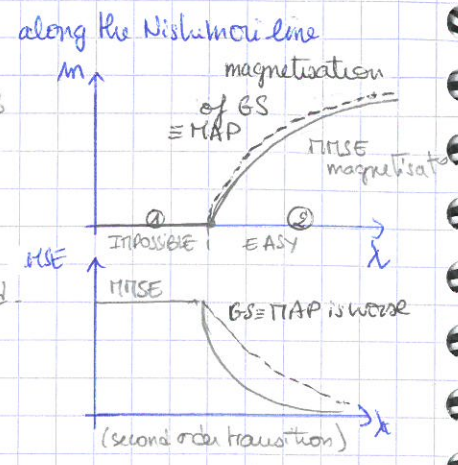 along the Nishimori line
m
magnetisation
of GS
≡ MAP
MMSE
magnetisat
① ②
IMPOSSIBLE EASY
λ
MSE
MMSE
GS≡MAP is worse
λ
(second order transition)